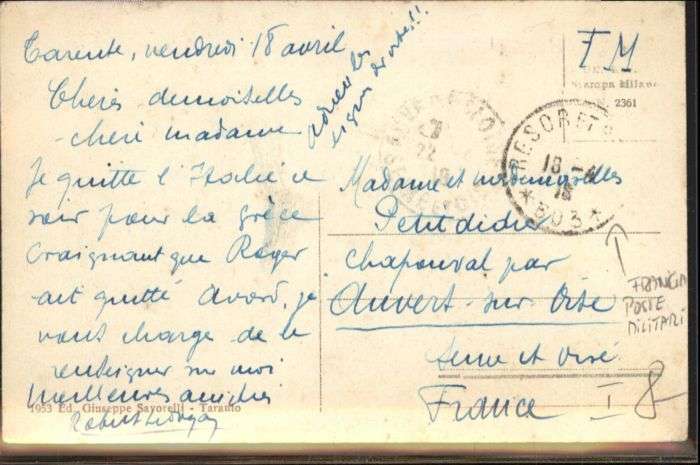 Tarente, vendredi 18 avril
Chères demoiselles
chère madame
Je quitte l'Italie ce
soir pour la grèce
craignant que Roger
ait quitté Avord, je
vous charge de le
renseigner sur moi
meilleures amitiés
1953 Ed. Giuseppe Savorelli - Taranto
FM
Stampa Milano
2361
18
503
Madame et mesdemoiselles
Petitdidier
chaponval par
Auvert-sur-Oise
Seine et Oise
France
FRANCIA
POSTE
MILITARI
I 8